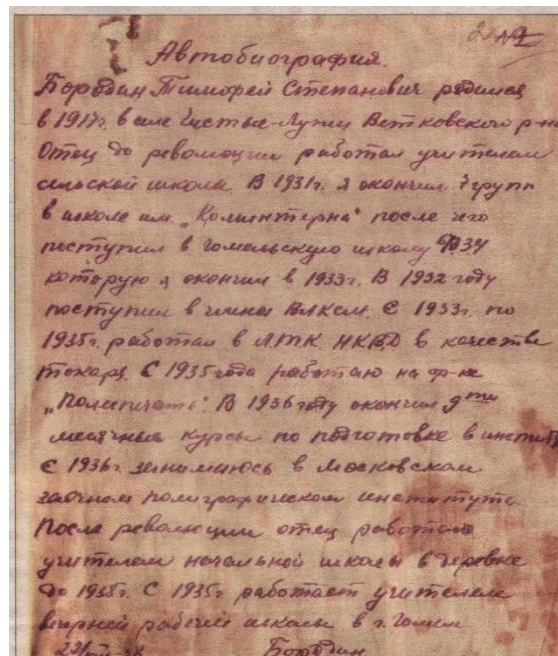 Автобиография.
Бородин Тимофей Степанович родился
в 1917г. в селе Чистые-Лужи Ветковского р-на
Отец до революции работал учителем
сельской школы. В 1931г. я окончил 7 групп
в школе им. „Коминтерна" после чего
поступил в гомельскую школу ФЗУ
которую я окончил в 1933г. В 1932 году
поступил в члены ВЛКСМ. С 1933г. по
1935г. работал в НКВД в качестве
токаря. С 1935 года работаю на ф-ке
„Полеспечать". В 1936 году окончил 9ти
месячные курсы по подготовке в институт
С 1936г. занимаюсь в Московском
заочном полиграфическом институте.
После революции отец работал
учителем начальной школы в деревне
до 1935г. С 1935г. работает учителем
вечерней рабочей школы в г. Гомеле
Бородин